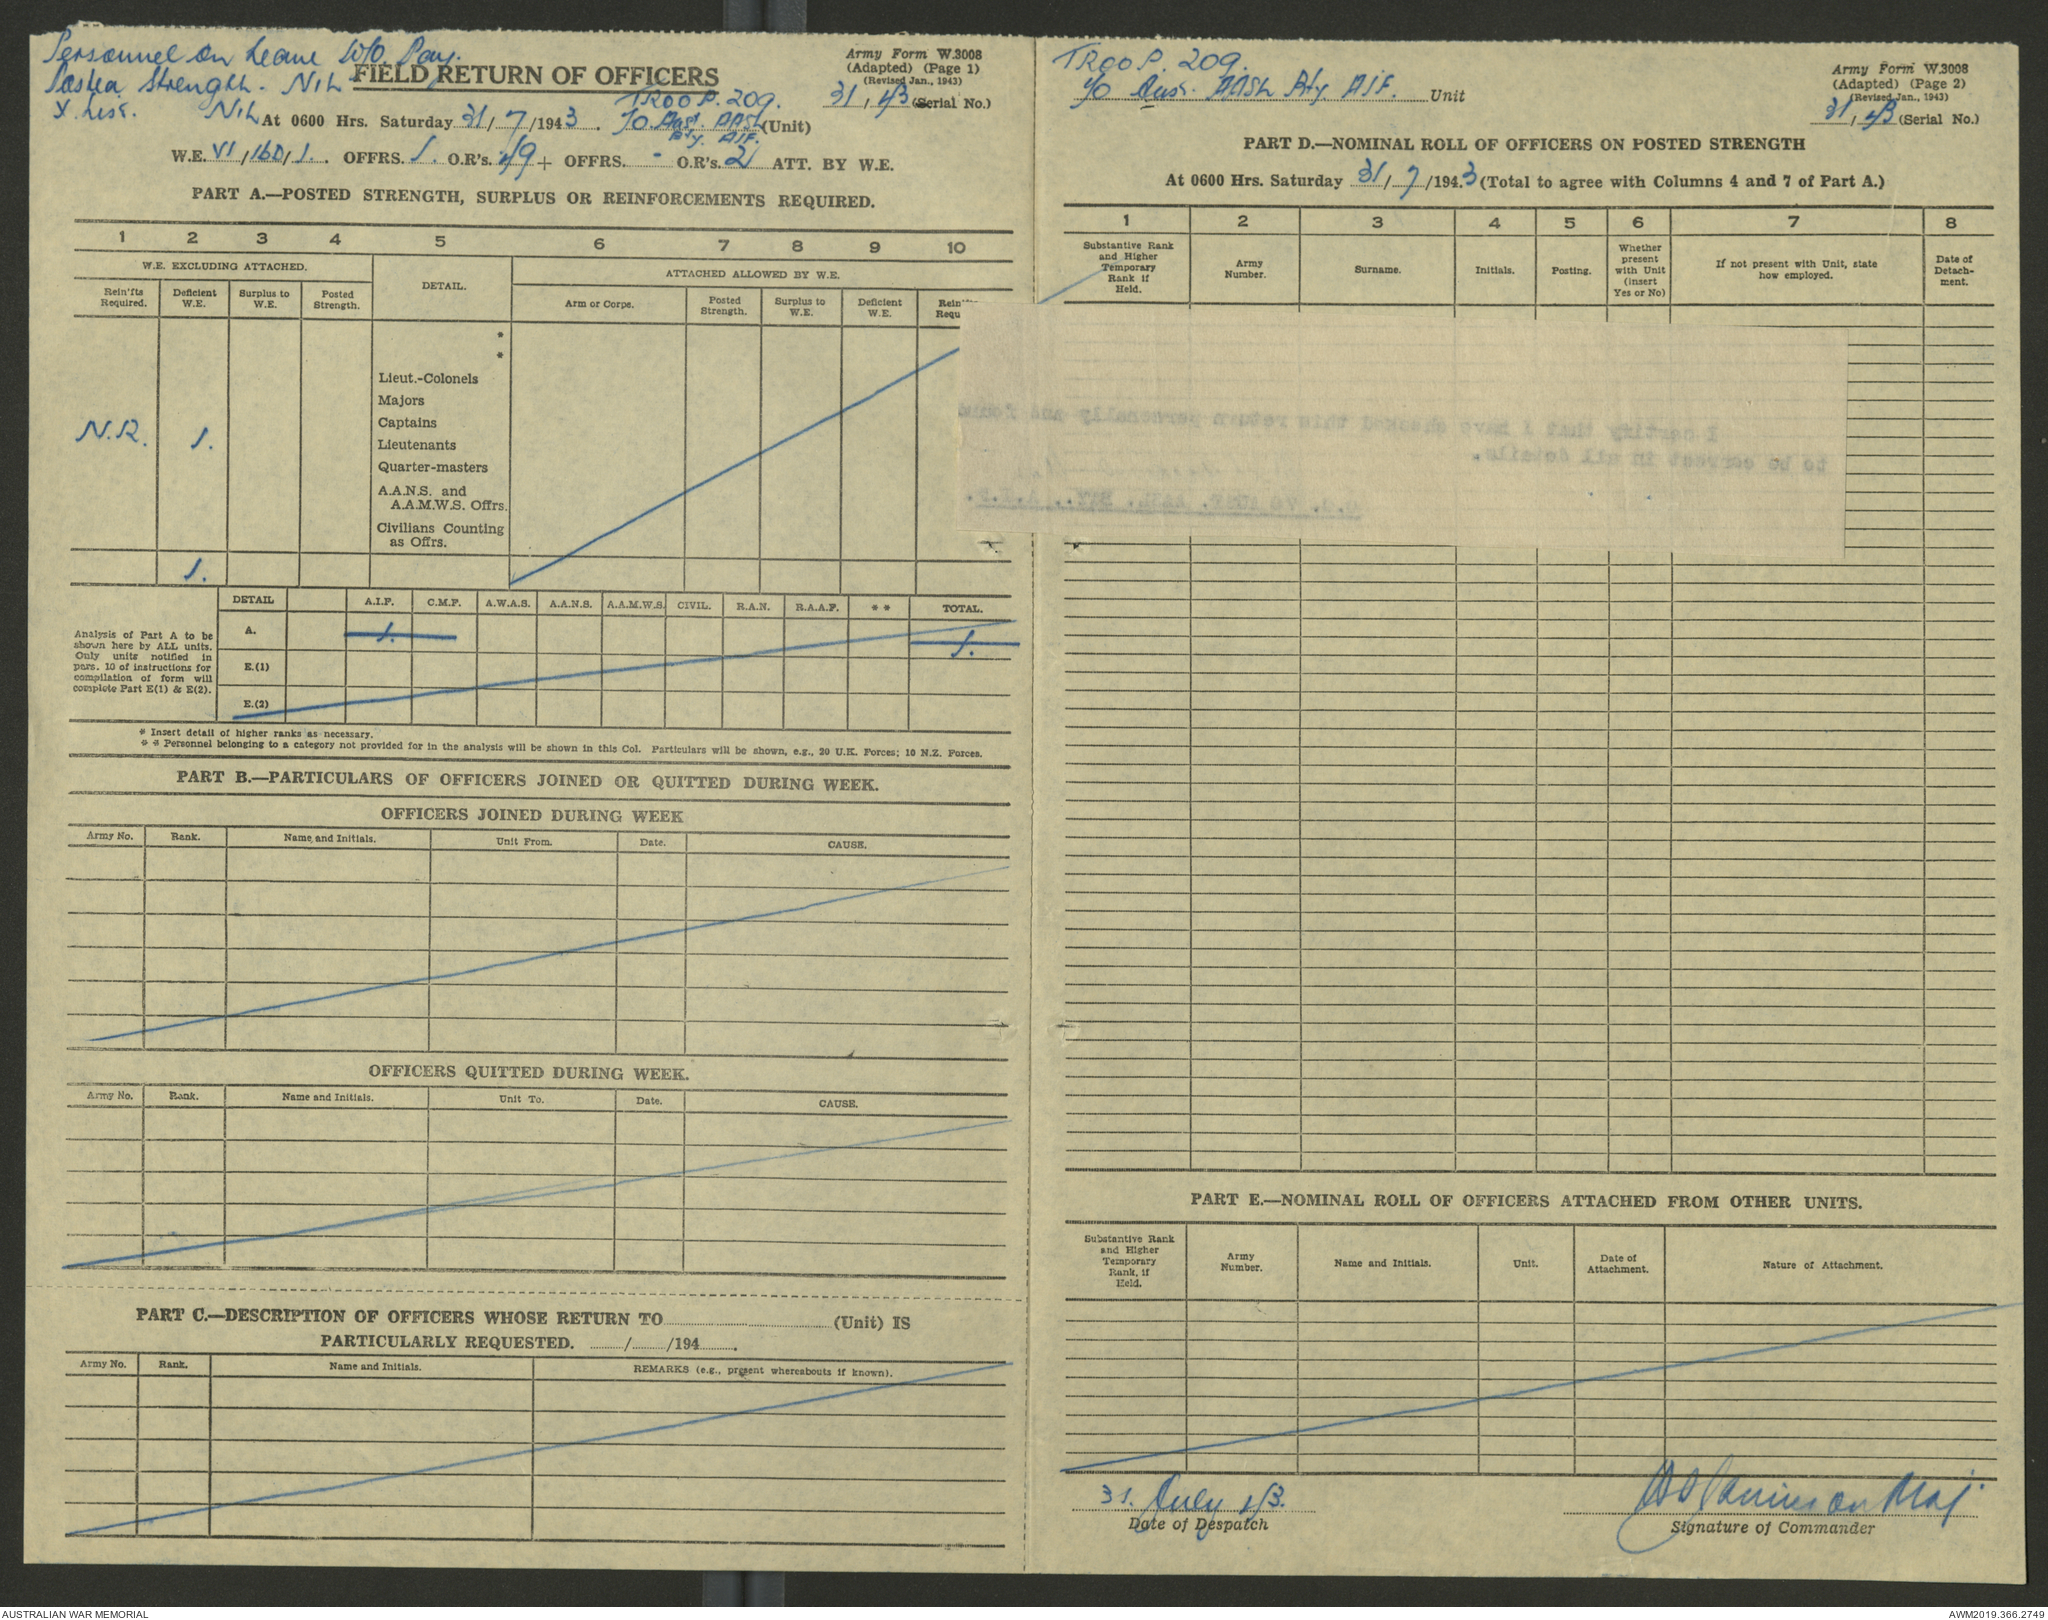 Personnel on Leave W/O. Pay.
Posted Strength. NIL
X List. NIL
FIELD RETURN OF OFFICERS
Army Form W.3008
(Adapted) (Page 1)
(Revised Jan., 1943)
31, 43 (Serial No.)
TROOP. 209.
At 0600 Hrs. Saturday 31/7/1943. 70. Aust. AASL (Unit)
Bty. AIF.
W.E. VI/160/1. OFFRS. 1. O.R's. 49 + OFFRS. - O.R's. 2 ATT. BY W.E.
PART A.—POSTED STRENGTH, SURPLUS OR REINFORCEMENTS REQUIRED.
1 2 3 4 5 6 7 8 9 10
W.E. EXCLUDING ATTACHED. DETAIL. ATTACHED ALLOWED BY W.E.
Rein'fts Required. Deficient W.E. Surplus to W.E. Posted Strength. Arm or Corps. Posted Strength. Surplus to W.E. Deficient W.E.
*
*
Lieut.-Colonels
Majors
Captains
N.R. 1. Lieutenants
Quarter-masters
A.A.N.S. and
A.A.M.W.S. Offrs.
Civilians Counting
as Offrs.
1.
DETAIL A.I.F. C.M.F. A.W.A.S. A.A.N.S. A.A.M.W.S. CIVIL. R.A.N. R.A.A.F. * * TOTAL.
Analysis of Part A to be
shown here by ALL units.
Only units notified in
para. 10 of instructions for
compilation of form will
complete Part E(1) & E(2).
A. 1. 1.
E.(1)
E.(2)
* Insert detail of higher ranks as necessary.
* * Personnel belonging to a category not provided for in the analysis will be shown in this Col. Particulars will be shown, e.g., 20 U.K. Forces; 10 N.Z. Forces.
PART B.—PARTICULARS OF OFFICERS JOINED OR QUITTED DURING WEEK.
OFFICERS JOINED DURING WEEK
Army No. Rank. Name and Initials. Unit From. Date. CAUSE.
OFFICERS QUITTED DURING WEEK.
Army No. Rank. Name and Initials. Unit To. Date. CAUSE.
PART C.—DESCRIPTION OF OFFICERS WHOSE RETURN TO (Unit) IS
PARTICULARLY REQUESTED. / /194 .
Army No. Rank. Name and Initials. REMARKS (e.g., present whereabouts if known).
TROOP. 209.
70 Aus. AASL Bty. AIF. Unit
Army Form W.3008
(Adapted) (Page 2)
(Revised Jan., 1943)
31, 43 (Serial No.)
PART D.—NOMINAL ROLL OF OFFICERS ON POSTED STRENGTH
At 0600 Hrs. Saturday 31/7/1943 (Total to agree with Columns 4 and 7 of Part A.)
1 2 3 4 5 6 7 8
Substantive Rank and Higher Temporary Rank if Held. Army Number. Surname. Initials. Posting. Whether present with Unit (insert Yes or No) If not present with Unit, state how employed. Date of Detachment.
I certify that I have checked this return personally and found
to be correct in all details.
O.C. 70 AUST. AASL. BTY., A.I.F.
PART E.—NOMINAL ROLL OF OFFICERS ATTACHED FROM OTHER UNITS.
Substantive Rank and Higher Temporary Rank, if Held. Army Number. Name and Initials. Unit. Date of Attachment. Nature of Attachment.
31. July 43.
Date of Despatch
Maj.
Signature of Commander
AUSTRALIAN WAR MEMORIAL
AWM2019.366.2749